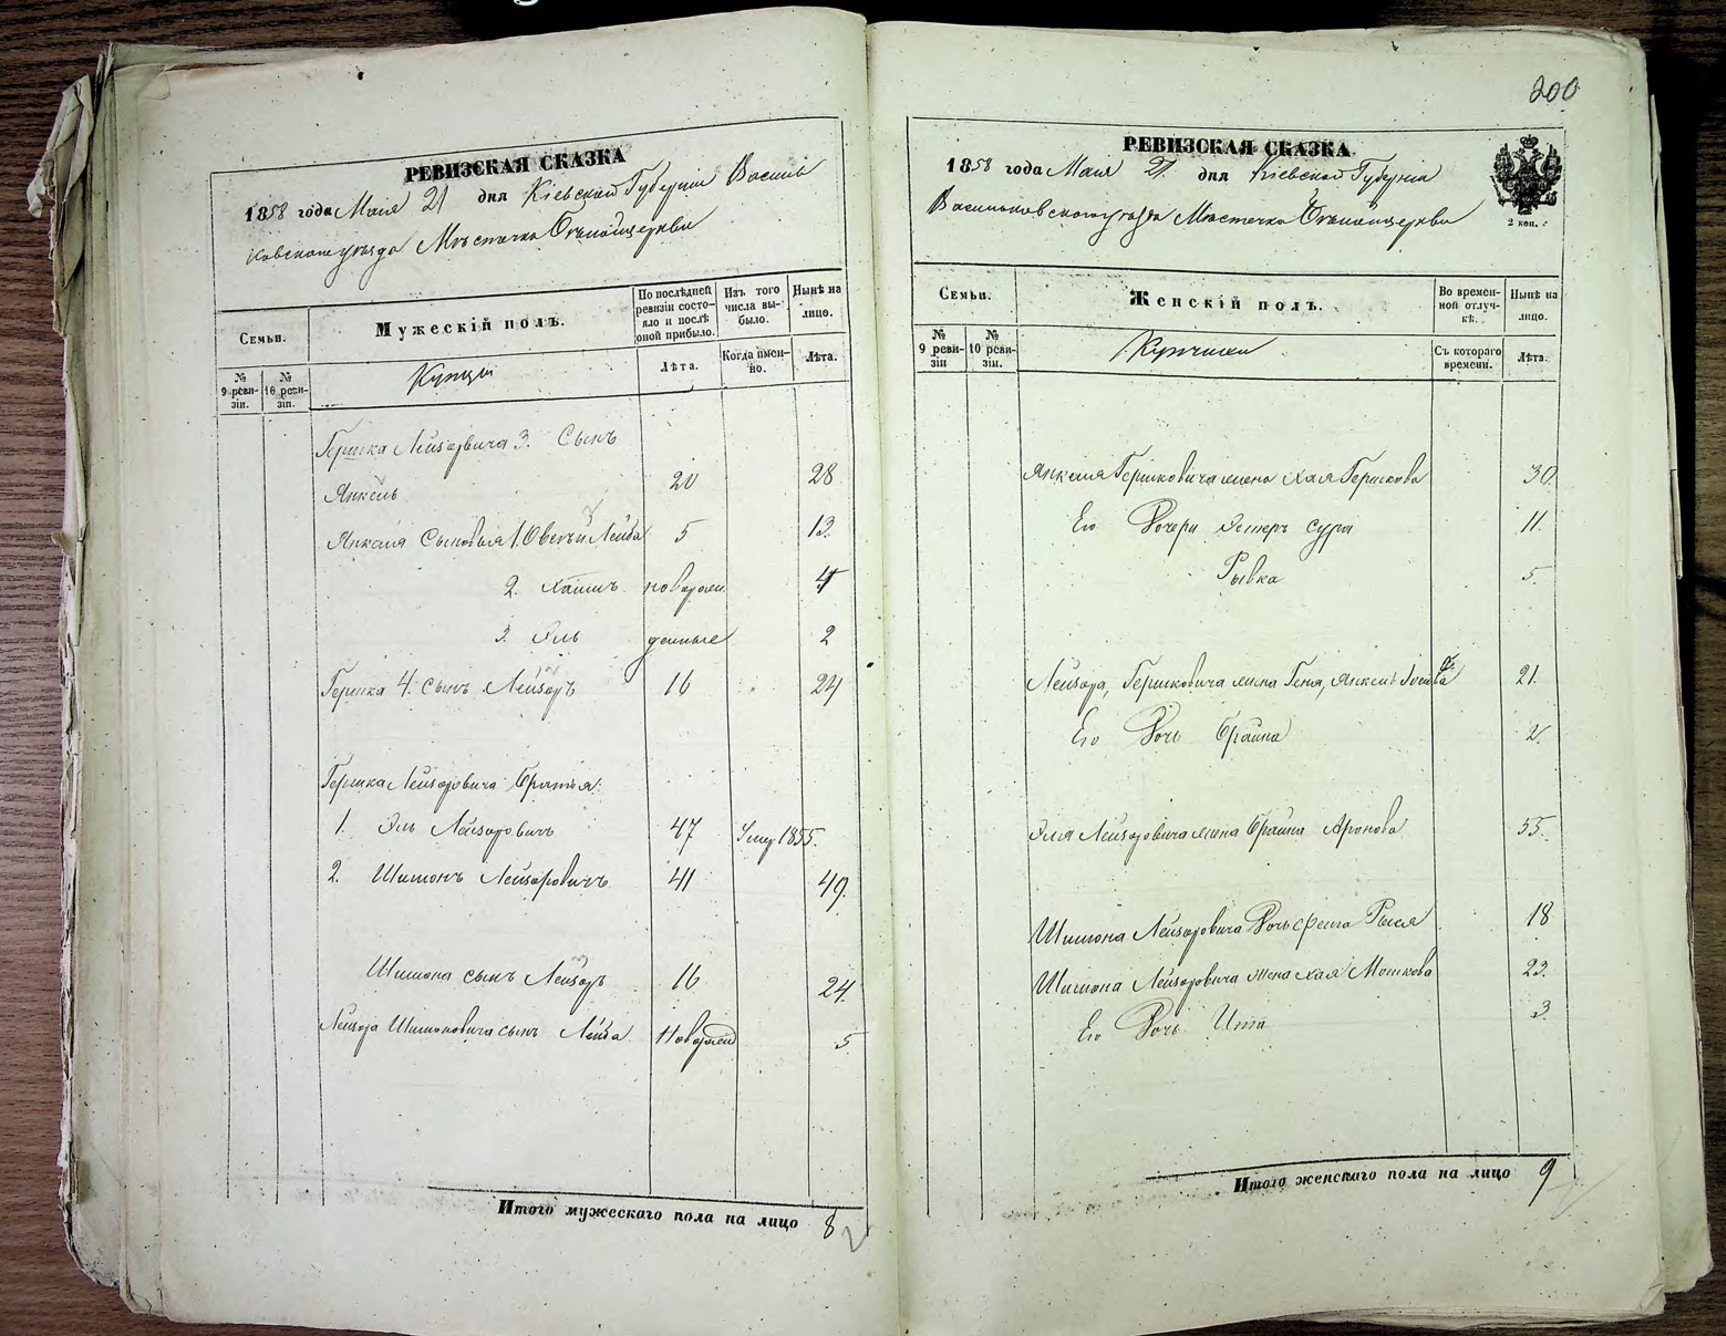 200
РЕВИЗСКАЯ СКАЗКА
1858 года Маія 21 дня Кіевской Губерніи Василь
ковского уѣзда Мѣстечка Бѣлойцеркви
Семьи.
Мужескій полъ.
По послѣдней ревизіи состояло и послѣ оной прибыло.
Изъ того числа выбыло.
Нынѣ на лицо.
№ 9 ревизіи.
№ 10 ревизіи.
Купцы
Лѣта.
Когда именно.
Лѣта.
Гершка Лейзоровича 3. Сынъ
Янкель 20 28
Янкеля Сыновья 1. Овсѣй Лейба 5 13.
2. Хаимъ новорож 4
3. Эль денные 2
Гершка 4. сынъ Лейзоръ 16 24
Гершка Лейзоровича братья:
1. Эль Лейзоровичъ 47 Умер 1855.
2. Шимонъ Лейзоровичъ 41 49.
Шимона сынъ Лейзоръ 16 24.
Лейзора Шимоновича сынъ Лейба Новорожд 5.
Итого мужескаго пола на лицо 8
РЕВИЗСКАЯ СКАЗКА.
1858 года Маія 21. дня Кіевской Губерніи
Васильковского уѣзда Мѣстечка Бѣлойцеркви
2 коп.
Семьи.
Женскій полъ.
Во временной отлучкѣ.
Нынѣ на лицо.
№ 9 ревизіи
№ 10 ревизіи.
Купчихи
Съ котораго времени.
Лѣта.
Янкеля Гершковича жена Хая Гершкова 30.
Его Дочери Эстеръ сура 11.
Рывка 5.
Лейзора, Гершковича жена Геня, Янкель 21.
Его Дочь Брайна 2.
Эля Лейзоровича жена Брайна Аронова 55.
Шимона Лейзоровича Дочь Рыся 18
Шимона Лейзоровича жена Хая Мошкова 23.
Его Дочь Ита 3.
Итого женскаго пола на лицо 9